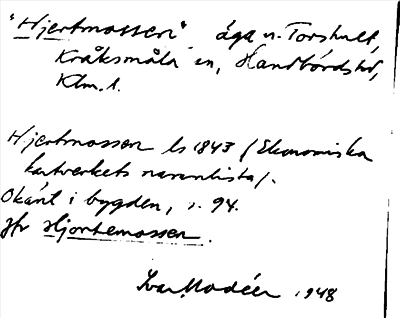 "Hjertmossen" äga u. Torshult,
Kråksmåla sn, Handbörds hd,
Klm. l.
Hjertmossen ls 1843 (Ekonomiska
kartverkets namnlista).
Okänt i bygden, s. 94.
Jfr Hjortemossen.
Ivar Modéer 1948